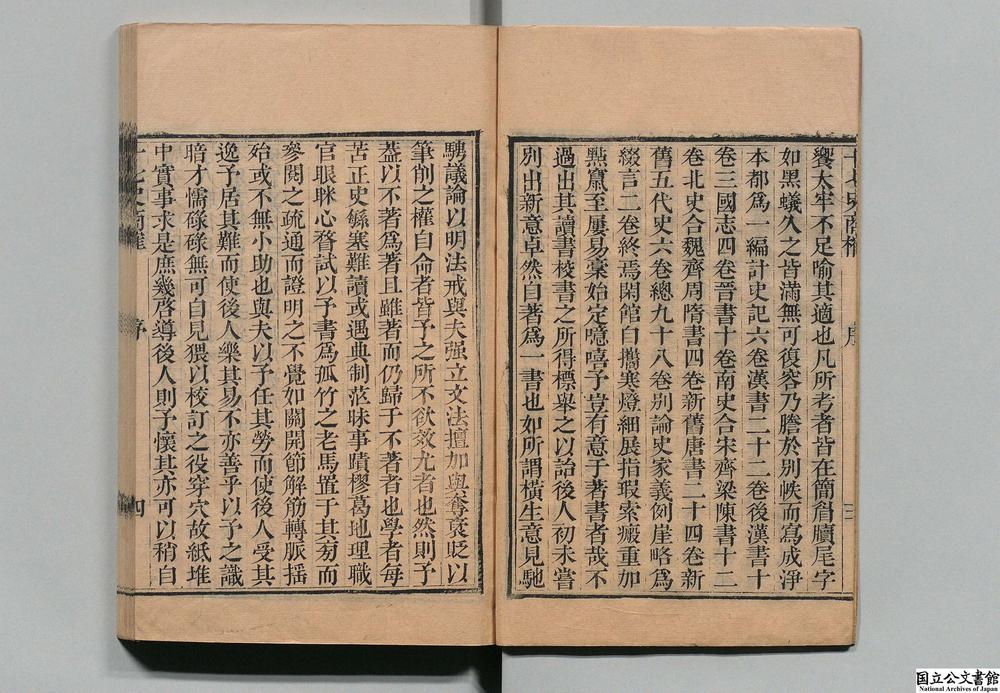 十七史商榷 序 三
饗太牢不足喻其適也凡所考者皆在簡眉牘尾字
如黑蟻久之皆滿無可復容乃謄於別帙而寫成淨
本都為一編計史記六卷漢書二十二卷後漢書十
卷三國志四卷晉書十卷南史合宋齊梁陳書十二
卷北史合魏齊周隋書四卷新舊唐書二十四卷新
舊五代史六卷總九十八卷別論史家義例崖略為
綴言二卷終焉閑館自攜寒燈細展指瑕索瘢重加
點竄至屢易稾始定噫嘻予豈有意于著書者哉不
過出其讀書校書之所得標舉之以詒後人初未嘗
別出新意卓然自著為一書也如所謂橫生意見馳
騁議論以明法戒與夫强立文法擅加與奪襃貶以
筆削之權自命者皆予之所不欲效尤者也然則予
葢以不著為著且雖著而仍歸于不著者也學者每
苦正史緐塞難讀或遇典制茫昧事蹟樛葛地理職
官眼眯心瞀試以予書為孤竹之老馬置于其旁而
參閱之疏通而證明之不覺如關開節解筋轉脈搖
殆或不無小助也與夫以予任其勞而使後人受其
逸予居其難而使後人樂其易不亦善乎以予之識
暗才懦碌碌無可自見猥以校訂之役穿穴故紙堆
中實事求是庶幾啓導後人則予懷其亦可以稍自
十七史商榷 序 四
国立公文書館
National Archives of Japan